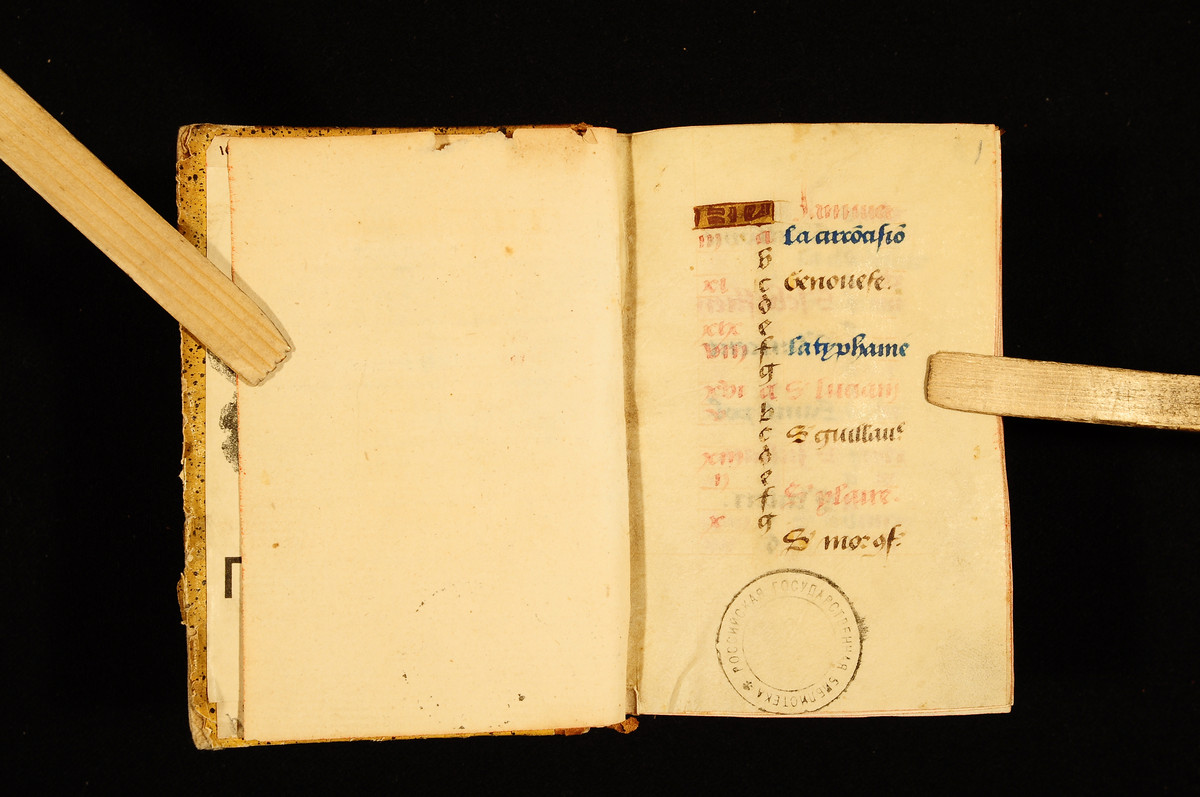 1
KL Januier
iii a La circōcisiō
b
xi c Genouefe.
d
xix e
viii f La typhaine
g
xvi a S' lucian
v b
c S' guillau⁹
xiii d
ii e
f S' ylaire.
x g
S' mor
РОССИЙСКАЯ ГОСУДАРСТВЕННАЯ БИБЛИОТЕКА